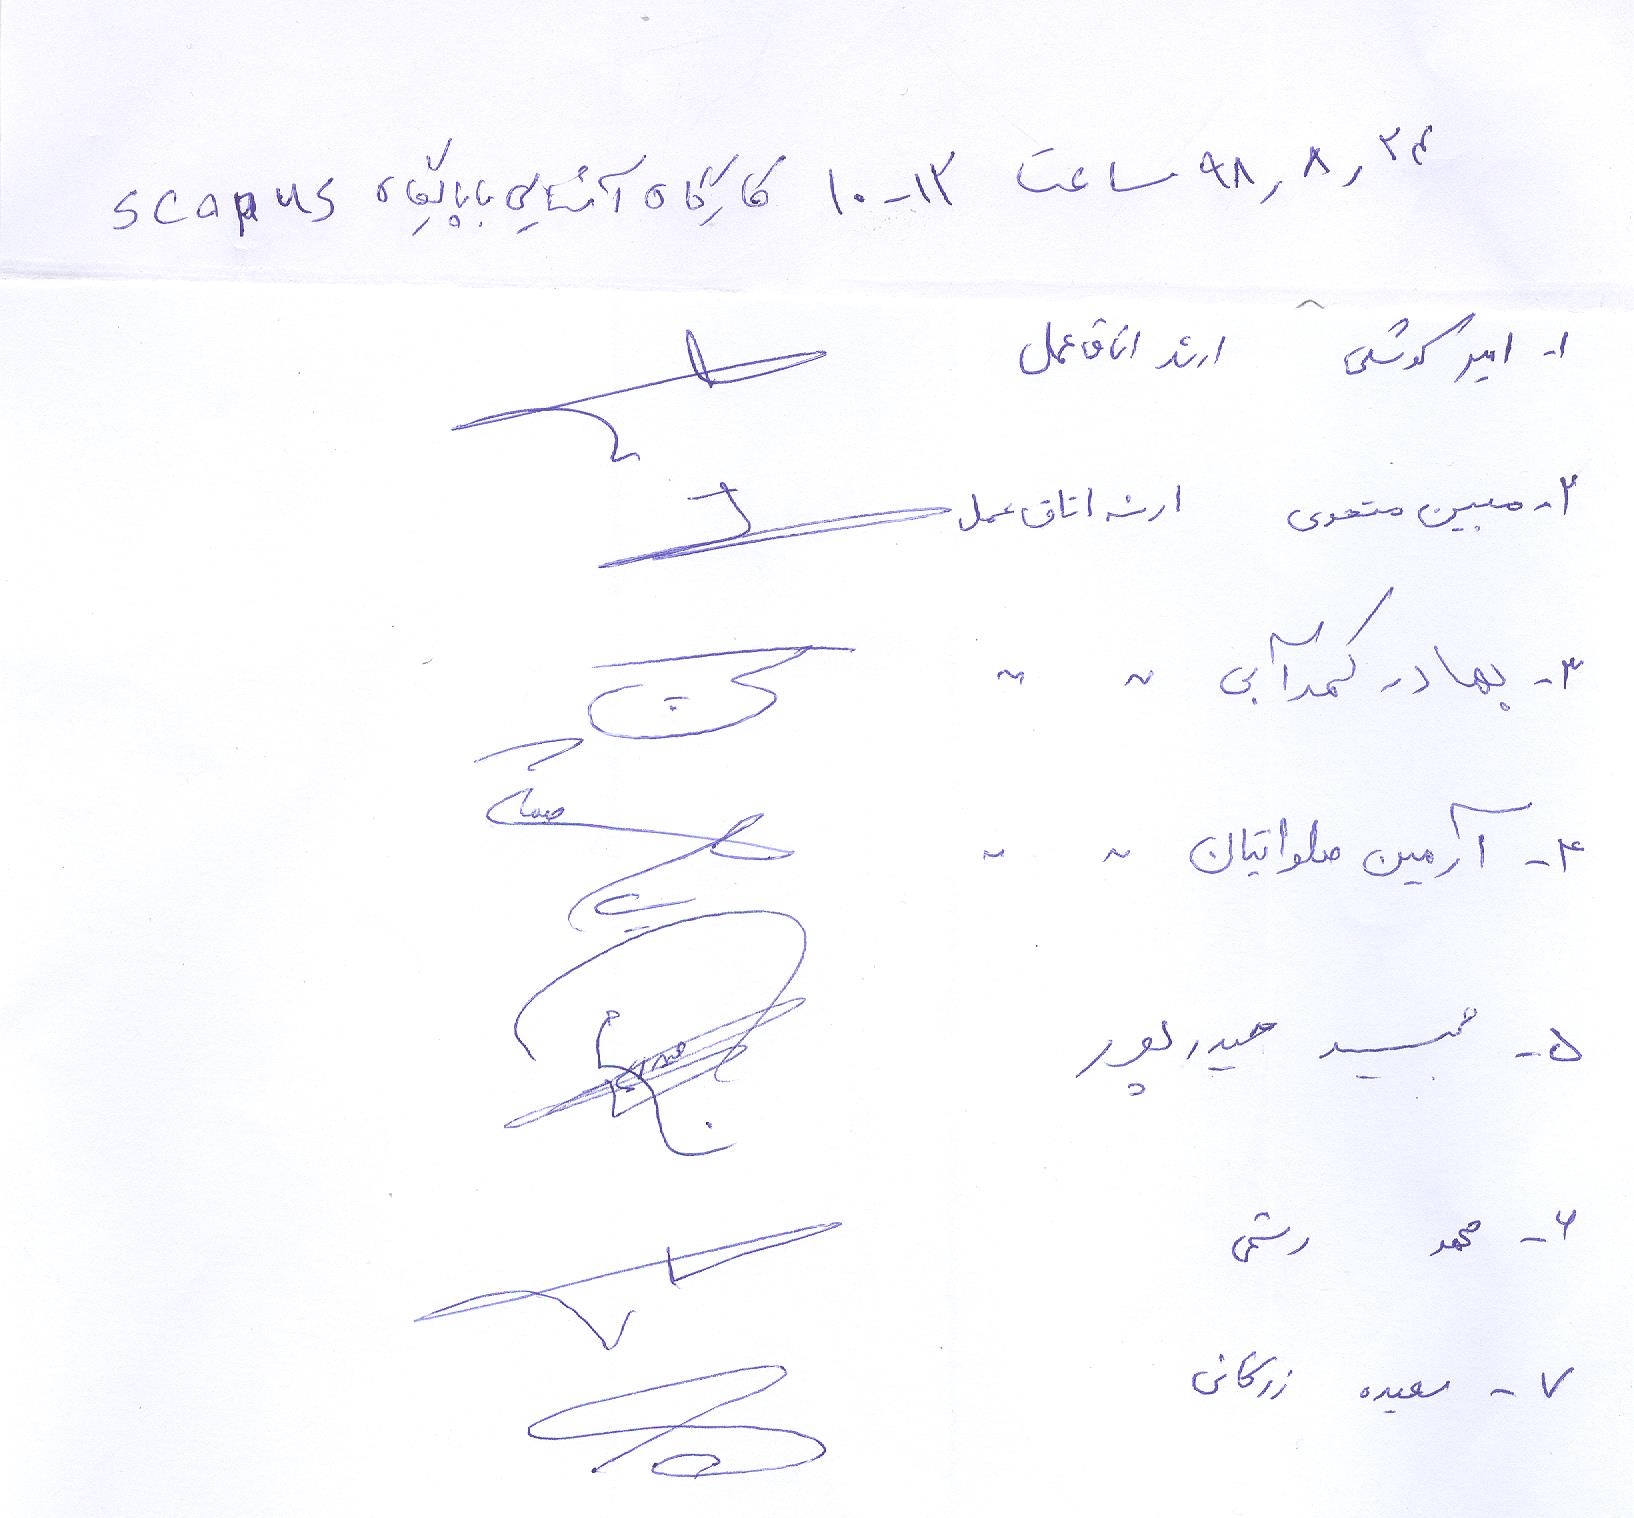 ۹۸٫۸٫۲۴ ساعت ۱۰-۱۲ کارگاه آشنایی با پایگاه scopus
۱- امیر گوشلی ارشد اتاق عمل
۲- مبین متعوی ارشد اتاق عمل
۳- بهادر کمدآبی ~ ~
۴- آرمین صلواتیان ~ ~
۵- حیدرپور
۶- محمد رستمی
۷- سعیده زرکانی